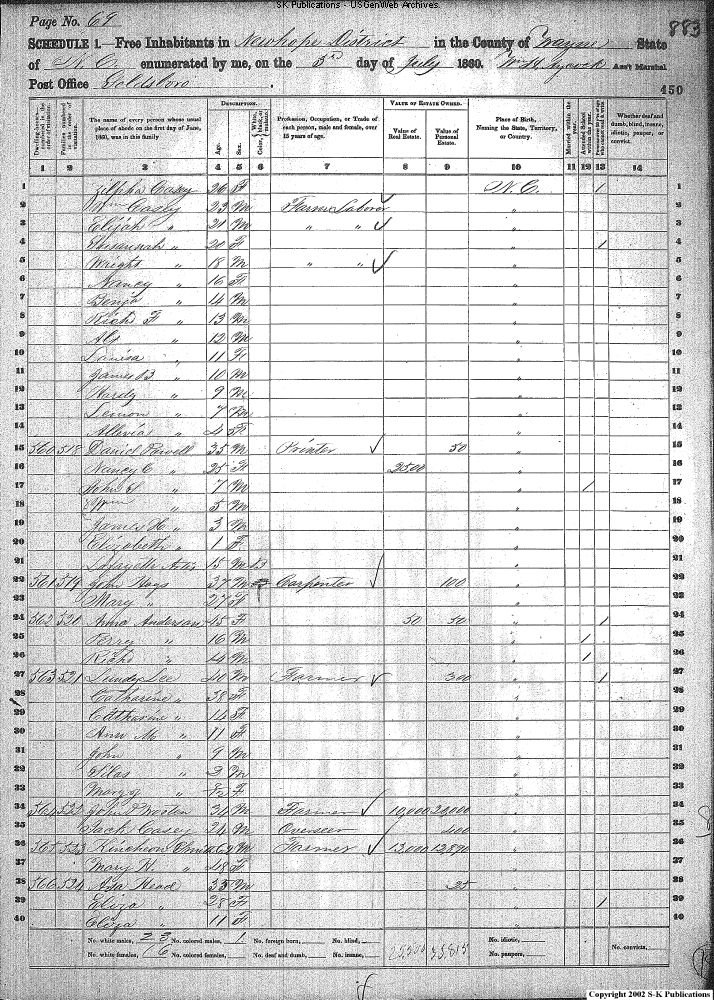 SK Publications - USGenWeb Archives
Page No. 69
883
SCHEDULE 1.—Free Inhabitants in Newhope District in the County of Wayne State
of N. C. enumerated by me, on the 3rd day of July 1860. Ass't Marshal
Post Office Goldsboro
450
Dwelling-houses numbered in the order of visitation.
Families numbered in the order of visitation.
The name of every person whose usual place of abode on the first day of June, 1860, was in this family
DESCRIPTION.
Age.
Sex.
Color, { White, black, or mulatto.
Profession, Occupation, or Trade of each person, male and female, over 15 years of age.
VALUE OF ESTATE OWNED.
Value of Real Estate.
Value of Personal Estate.
Place of Birth, Naming the State, Territory, or Country.
Married within the year.
Attended School within the year.
Whether deaf and dumb, blind, insane, idiotic, pauper, or convict.
1 2 3 4 5 6 7 8 9 10 11 12 13 14
1 Zilpha Casey 26 F N. C. / 1
2 Wm Casey 23 M Farm Labor " 2
3 Elijah " 21 M " " " 3
4 " 20 F " / 4
5 Wright " 18 M " " " 5
6 Nancy " 16 F " 6
7 Benja " 14 M " 7
8 Richd F " 13 M " 8
9 " 12 M " 9
10 Louisa " 11 F " 10
11 James B " 10 M " 11
12 Hardy " 9 M " 12
13 Lemon " 7 M " 13
14 " 4 F " 14
15 560 518 Daniel Powell 35 M Printer 50 " 15
16 Nancy C " 25 F 2500 " 16
17 John " 7 M " / 17
18 Wm " 5 M " 18
19 James H " 3 M " 19
20 Elizabeth " 1 F " 20
21 Lafayette 15 M " 21
22 561 519 John Hays 37 M Carpenter 100 " 22
23 Mary " 27 F " 23
24 562 520 Anna Anderson 45 F 50 50 " / 24
25 Perry " 16 M " / 25
26 Richd " 14 M " / 26
27 563 521 Lundy Lee 40 M Farmer 300 " / 27
28 Catharine " 38 F " 28
29 Catharine " 14 F " 29
30 Ann M " 11 F " 30
31 John " 9 M " 31
32 Silas " 3 M " 32
33 Mary " F " 33
34 564 522 John Wooten 34 M Farmer 10,000 20,000 " 34
35 Jack Casey 24 M Overseer 400 " 35
36 565 523 Kinchion Smith 69 M Farmer 13,000 12,890 " 36
37 Mary H. " 48 F " 37
38 566 524 Asa Head 35 M 25 " 38
39 Eliza " 28 F " / 39
40 Eliza " 11 F " 40
No. white males, 23 No. colored males, 1 No. foreign born, No. blind, No. idiotic, No. convicts,
No. white females, 16 No. colored females, No. deaf and dumb, No. insane, 25,550 35,815 No. paupers,
Copyright 2002 S-K Publications